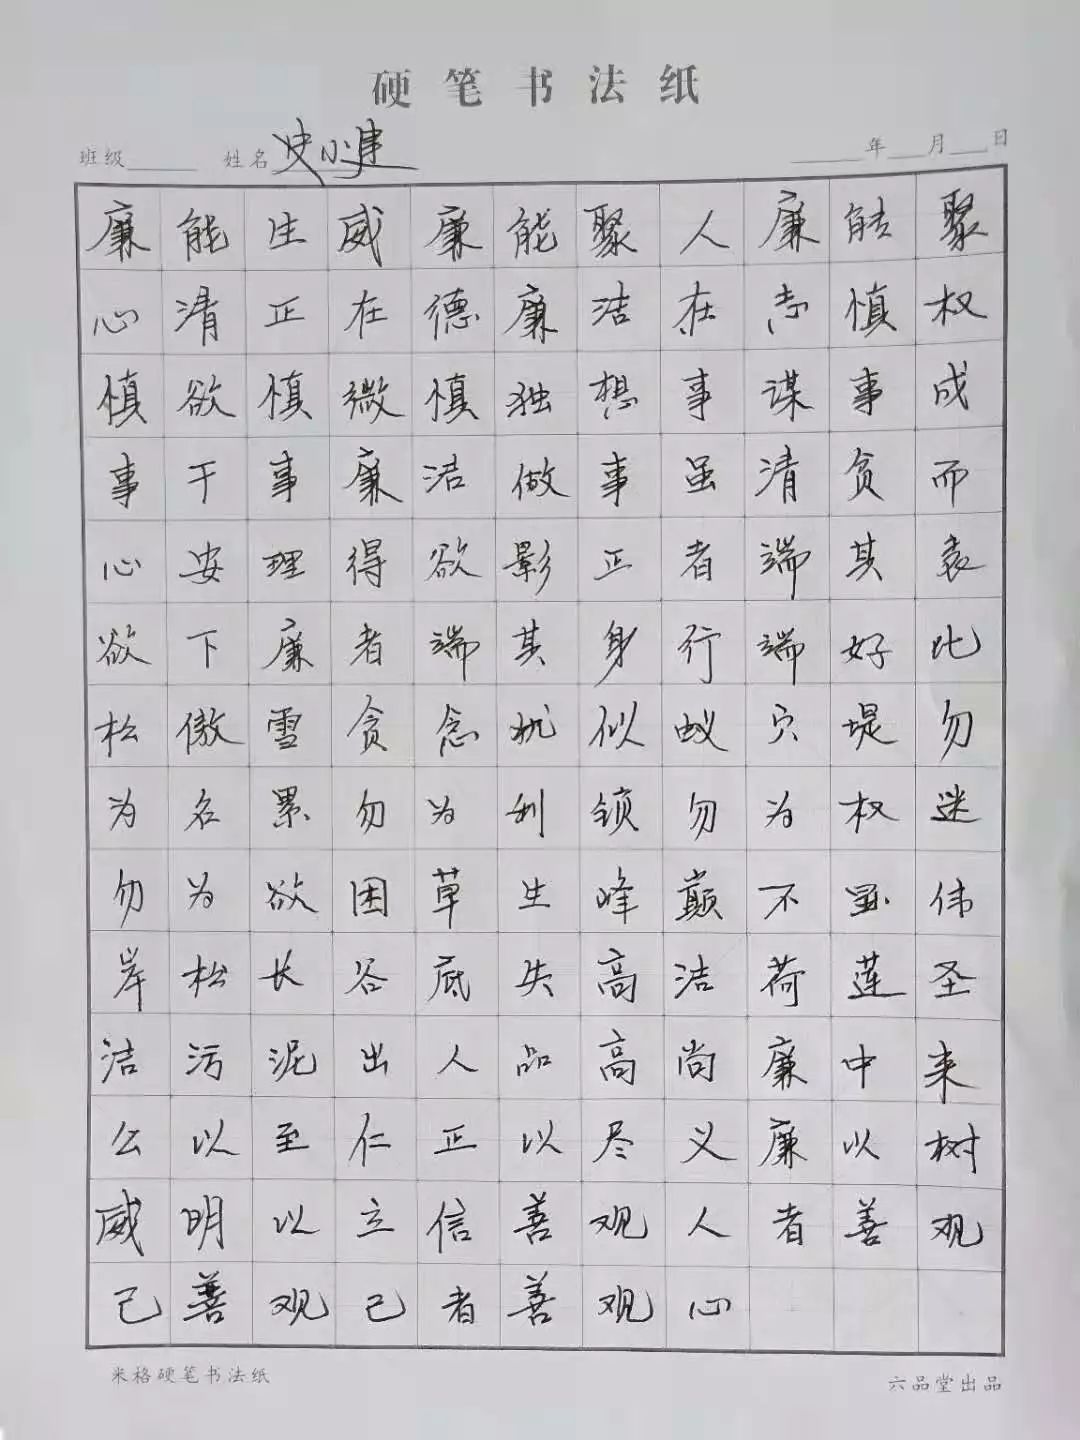 硬笔书法纸
班级 姓名 史小建 年 月 日
廉能生威廉能聚人廉能聚
心清正在德廉洁在志慎权
慎欲慎微慎独想事谋事成
事干事廉洁做事虽清贫而
心安理得欲影正者端其表
欲下廉者端其身行端好比
松傲雪贪念犹似蚁穴堤勿
为名累勿为利锁勿为权迷
勿为欲困草生峰巅不显伟
岸松长谷底失高洁荷莲圣
洁污泥出人品高尚廉中来
公以至仁正以尽义廉以树
威明以立信善观人者善观
己善观己者善观心
米格硬笔书法纸 六品堂出品